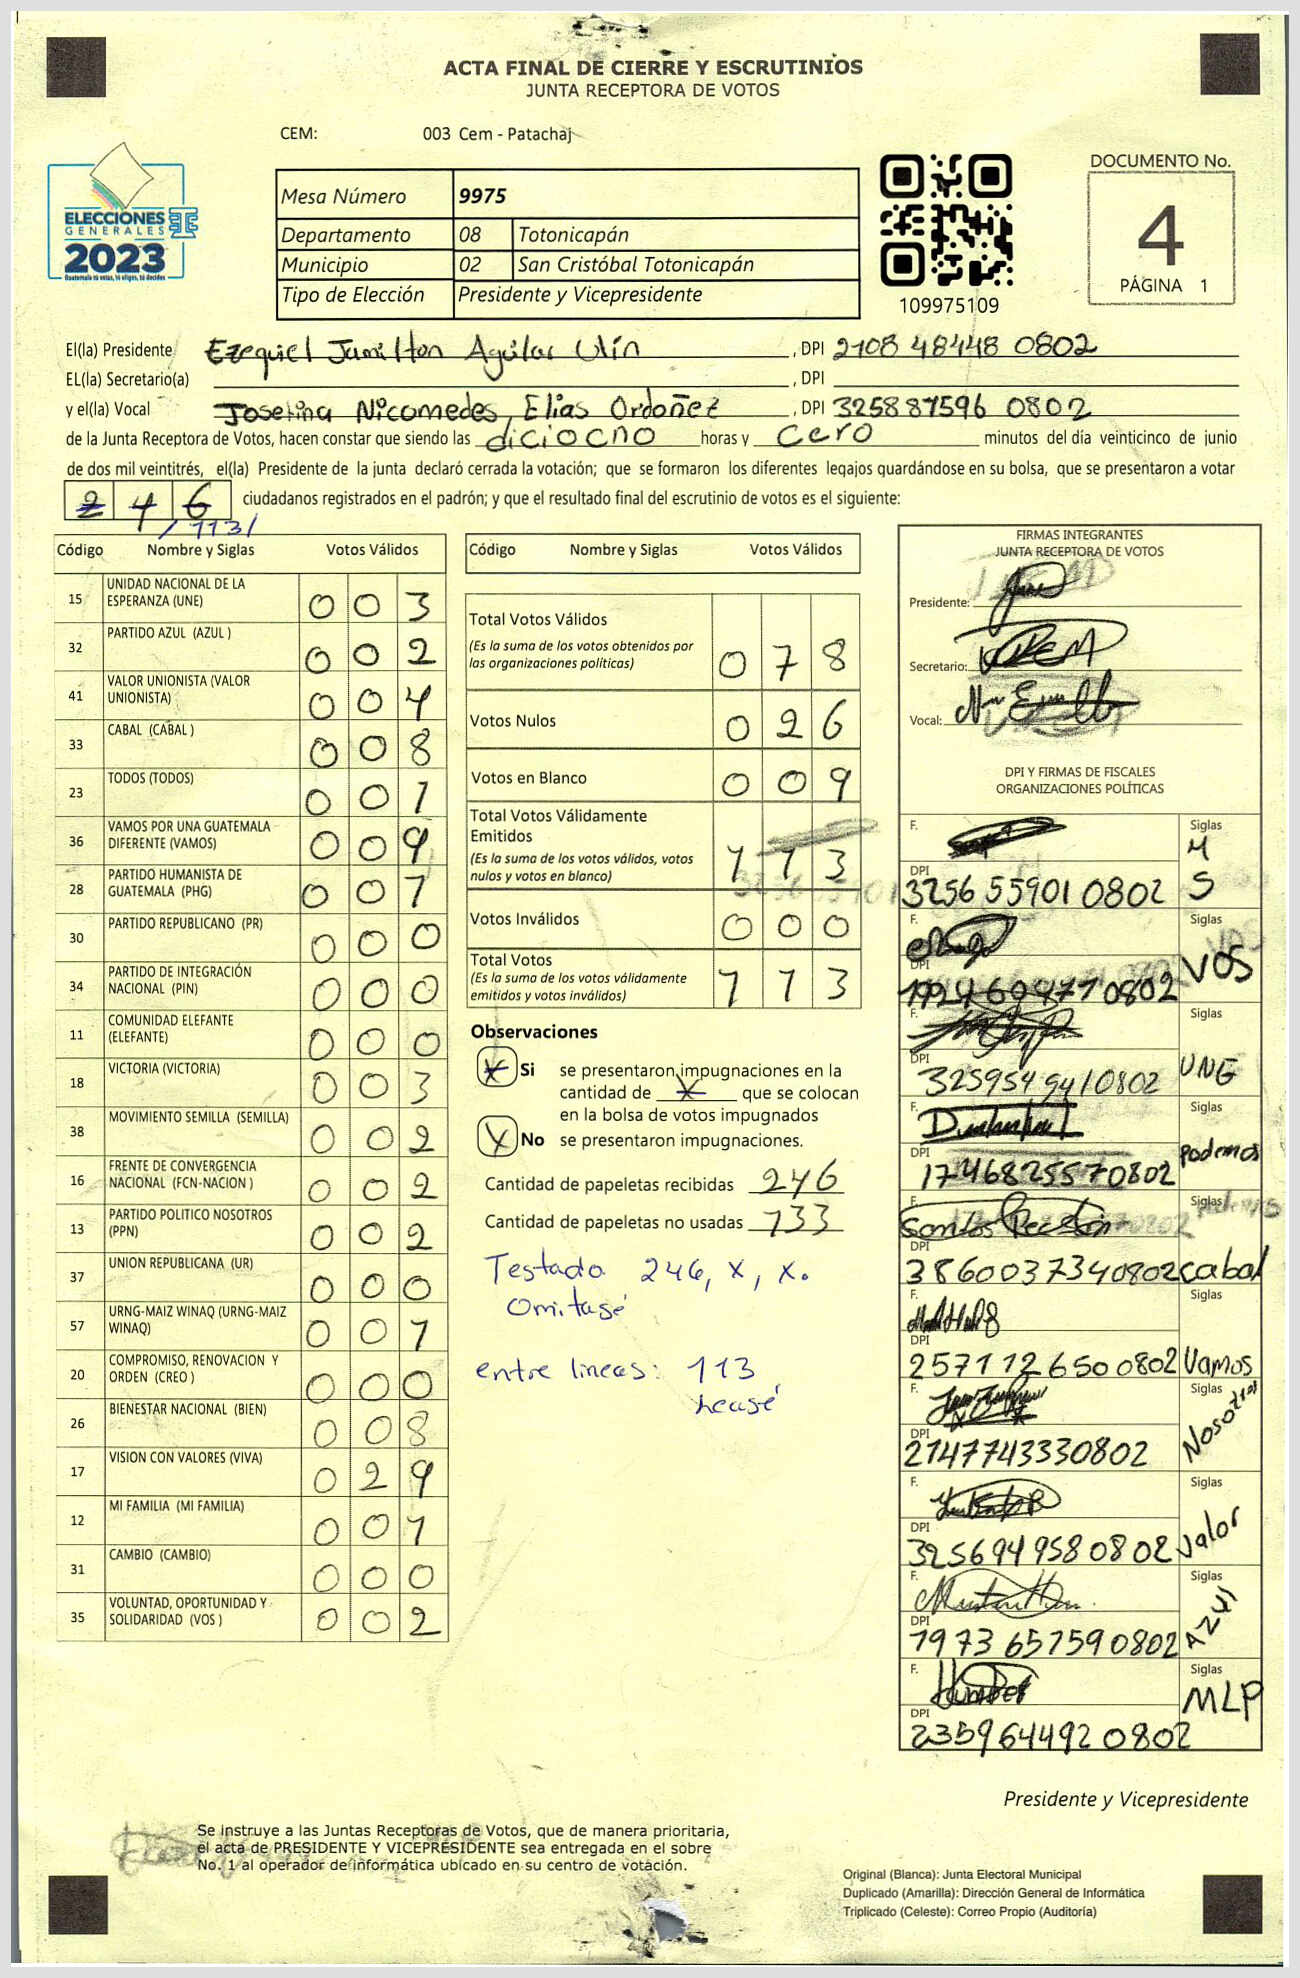 ACTA FINAL DE CIERRE Y ESCRUTINIOS
JUNTA RECEPTORA DE VOTOS
CEM: 003 Cem - Patachaj
ELECCIONES
GENERALES
2023
Mesa Número 9975
Departamento 08 Totonicapán
Municipio 02 San Cristóbal Totonicapán
Tipo de Elección Presidente y Vicepresidente
109975109
DOCUMENTO No.
4
PÁGINA 1
El(la) Presidente Ezequiel Jamilton Aguilar Ulín , DPI 2108 48448 0802
EL(la) Secretario(a) , DPI
y el(la) Vocal Josefina Nicomedes Elias Ordoñez , DPI 325887596 0802
de la Junta Receptora de Votos, hacen constar que siendo las diciocho horas y cero minutos del día veinticinco de junio
de dos mil veintitrés, el(la) Presidente de la junta declaró cerrada la votación; que se formaron los diferentes legajos guardándose en su bolsa, que se presentaron a votar
246 ciudadanos registrados en el padrón; y que el resultado final del escrutinio de votos es el siguiente:
/ 113/
Código Nombre y Siglas Votos Válidos
15 UNIDAD NACIONAL DE LA ESPERANZA (UNE) 0 0 3
32 PARTIDO AZUL (AZUL ) 0 0 2
41 VALOR UNIONISTA (VALOR UNIONISTA) 0 0 4
33 CABAL (CABAL ) 0 0 8
23 TODOS (TODOS) 0 0 1
36 VAMOS POR UNA GUATEMALA DIFERENTE (VAMOS) 0 0 9
28 PARTIDO HUMANISTA DE GUATEMALA (PHG) 0 0 1
30 PARTIDO REPUBLICANO (PR) 0 0 0
34 PARTIDO DE INTEGRACIÓN NACIONAL (PIN) 0 0 0
11 COMUNIDAD ELEFANTE (ELEFANTE) 0 0 0
18 VICTORIA (VICTORIA) 0 0 3
38 MOVIMIENTO SEMILLA (SEMILLA) 0 0 2
16 FRENTE DE CONVERGENCIA NACIONAL (FCN-NACION ) 0 0 2
13 PARTIDO POLITICO NOSOTROS (PPN) 0 0 2
37 UNION REPUBLICANA (UR) 0 0 0
57 URNG-MAIZ WINAQ (URNG-MAIZ WINAQ) 0 0 1
20 COMPROMISO, RENOVACION Y ORDEN (CREO ) 0 0 0
26 BIENESTAR NACIONAL (BIEN) 0 0 8
17 VISION CON VALORES (VIVA) 0 2 9
12 MI FAMILIA (MI FAMILIA) 0 0 1
31 CAMBIO (CAMBIO) 0 0 0
35 VOLUNTAD, OPORTUNIDAD Y SOLIDARIDAD (VOS ) 0 0 2
Código Nombre y Siglas Votos Válidos
Total Votos Válidos 0 7 8
(Es la suma de los votos obtenidos por
las organizaciones políticas)
Votos Nulos 0 2 6
Votos en Blanco 0 0 9
Total Votos Válidamente
Emitidos 1 1 3
(Es la suma de los votos válidos, votos
nulos y votos en blanco)
Votos Inválidos 0 0 0
Total Votos 1 1 3
(Es la suma de los votos válidamente
emitidos y votos inválidos)
Observaciones
X Si se presentaron impugnaciones en la
cantidad de X que se colocan
en la bolsa de votos impugnados
X No se presentaron impugnaciones.
Cantidad de papeletas recibidas 246
Cantidad de papeletas no usadas 133
Testado 246, x, x.
Omitasé
entre lineas: 113
Leasé
FIRMAS INTEGRANTES
JUNTA RECEPTORA DE VOTOS
Presidente:
Secretario:
Vocal:
DPI Y FIRMAS DE FISCALES
ORGANIZACIONES POLÍTICAS
F. Siglas M S
DPI 3256 55901 0802
F. Siglas VOS
DPI 1924604710802
F. Siglas UNE
DPI 3259549410802
F. Siglas Podemos
DPI 1746825570802
F. Siglas Cabal
DPI 3860037340802
F. Siglas Vamos
DPI 2571126500802
F. Siglas Nosotros
DPI 2147743330802
F. Siglas Valor
DPI 3256949580802
F. Siglas AZUL
DPI 1973657590802
F. Siglas MLP
DPI 2359644920802
Presidente y Vicepresidente
Se instruye a las Juntas Receptoras de Votos, que de manera prioritaria,
el acta de PRESIDENTE Y VICEPRESIDENTE sea entregada en el sobre
No. 1 al operador de informática ubicado en su centro de votación.
Original (Blanca): Junta Electoral Municipal
Duplicado (Amarilla): Dirección General de Informática
Triplicado (Celeste): Correo Propio (Auditoría)